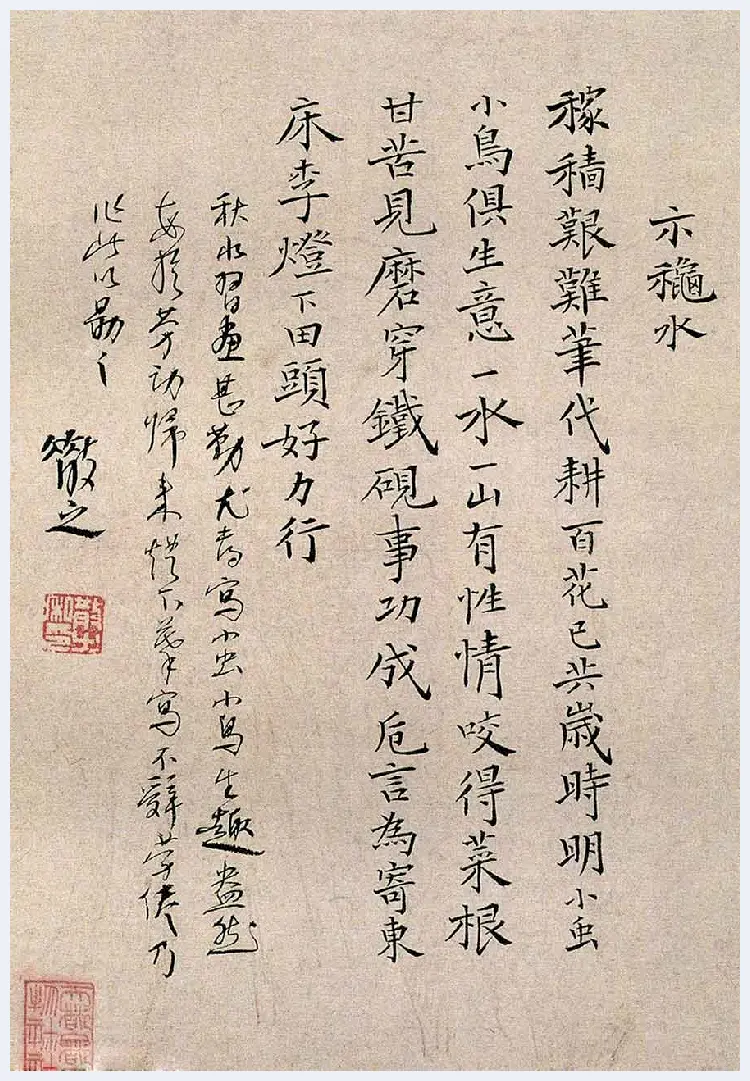 示龝水
稼穡艱難筆代耕百花已共歲時明小虫
小鳥俱生意一水一山有性情咬得菜根
甘苦見磨穿鐵硯事功成卮言為寄東
床李燈下田頭好力行
秋水習畫甚勤尤喜寫小虫小鳥生趣盎然
每於勞動歸來燈下摹寫不辭勞倦乃
作此以勗之
之